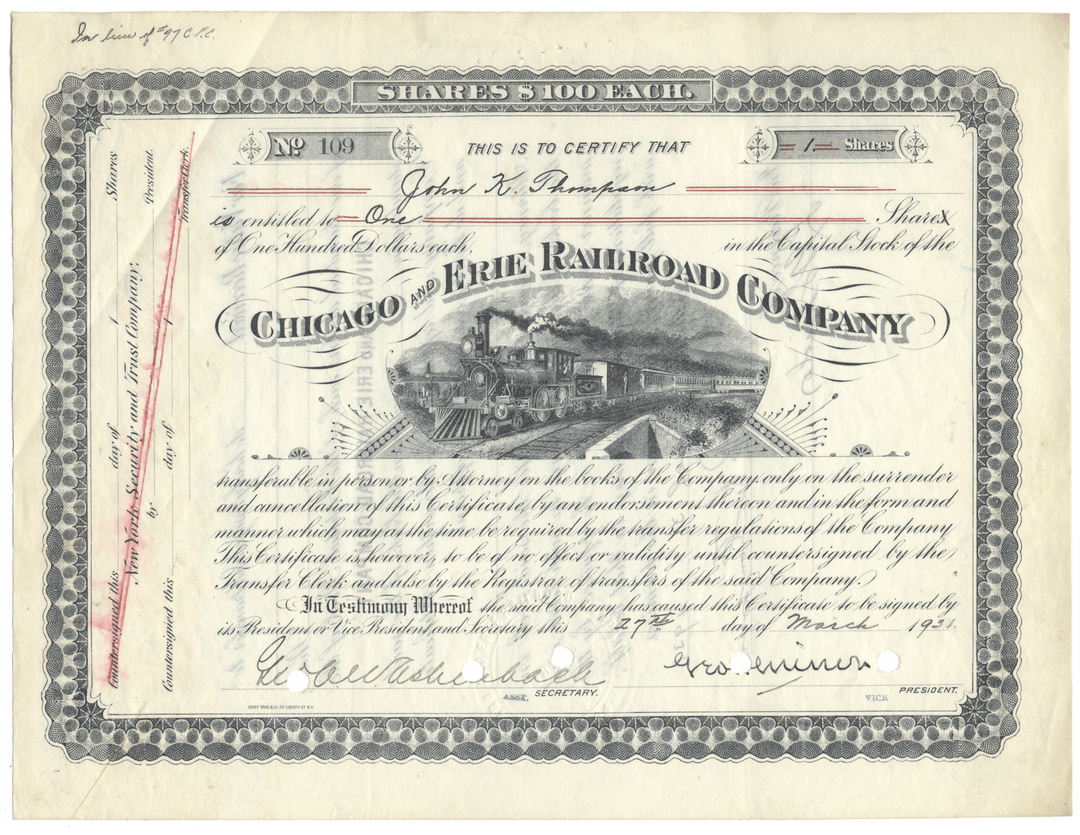 In lieu of #97 C.P.C.
SHARES $100 EACH.
No 109
THIS IS TO CERTIFY THAT
1 Shares
John K. Thompson
is entitled to One Share
of One Hundred Dollars each, in the Capital Stock of the
CHICAGO AND ERIE RAILROAD COMPANY
transferable in person or by Attorney on the books of the Company only on the surrender
and cancellation of this Certificate, by an endorsement thereon and in the form and
manner which may at the time be required by the transfer regulations of the Company
This Certificate is, however, to be of no effect or validity until countersigned by the
Transfer Clerk and also by the Registrar of transfers of the said Company.
In Testimony Whereof the said Company has caused this Certificate to be signed by
its President or Vice President and Secretary this 27th day of March 1931.
ASST. SECRETARY.
VICE PRESIDENT.
Countersigned this day of 1 Shares
New York Security and Trust Company,
by President.
Countersigned this day of 1
Transfer Clerk.